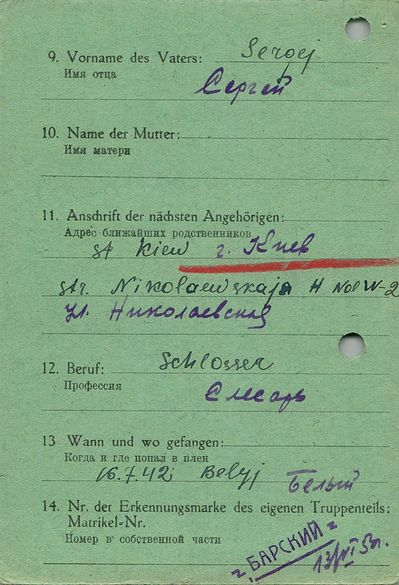 9. Vorname des Vaters: Sergej
Имя отца
Сергей
10. Name der Mutter:
Имя матери
11. Anschrift der nächsten Angehörigen:
Адрес ближайших родственников
St Kiew г. Киев
Str. Nikolaewskaja H
ул. Николаевская
12. Beruf: Schlosser
Профессия
Слесарь
13 Wann und wo gefangen:
Когда и где попал в плен
16.7.42 Belyj Белый
14. Nr. der Erkennungsmarke des eigenen Truppenteils:
Matrikel-Nr.
Номер в собственной части
БАРСКИЙ